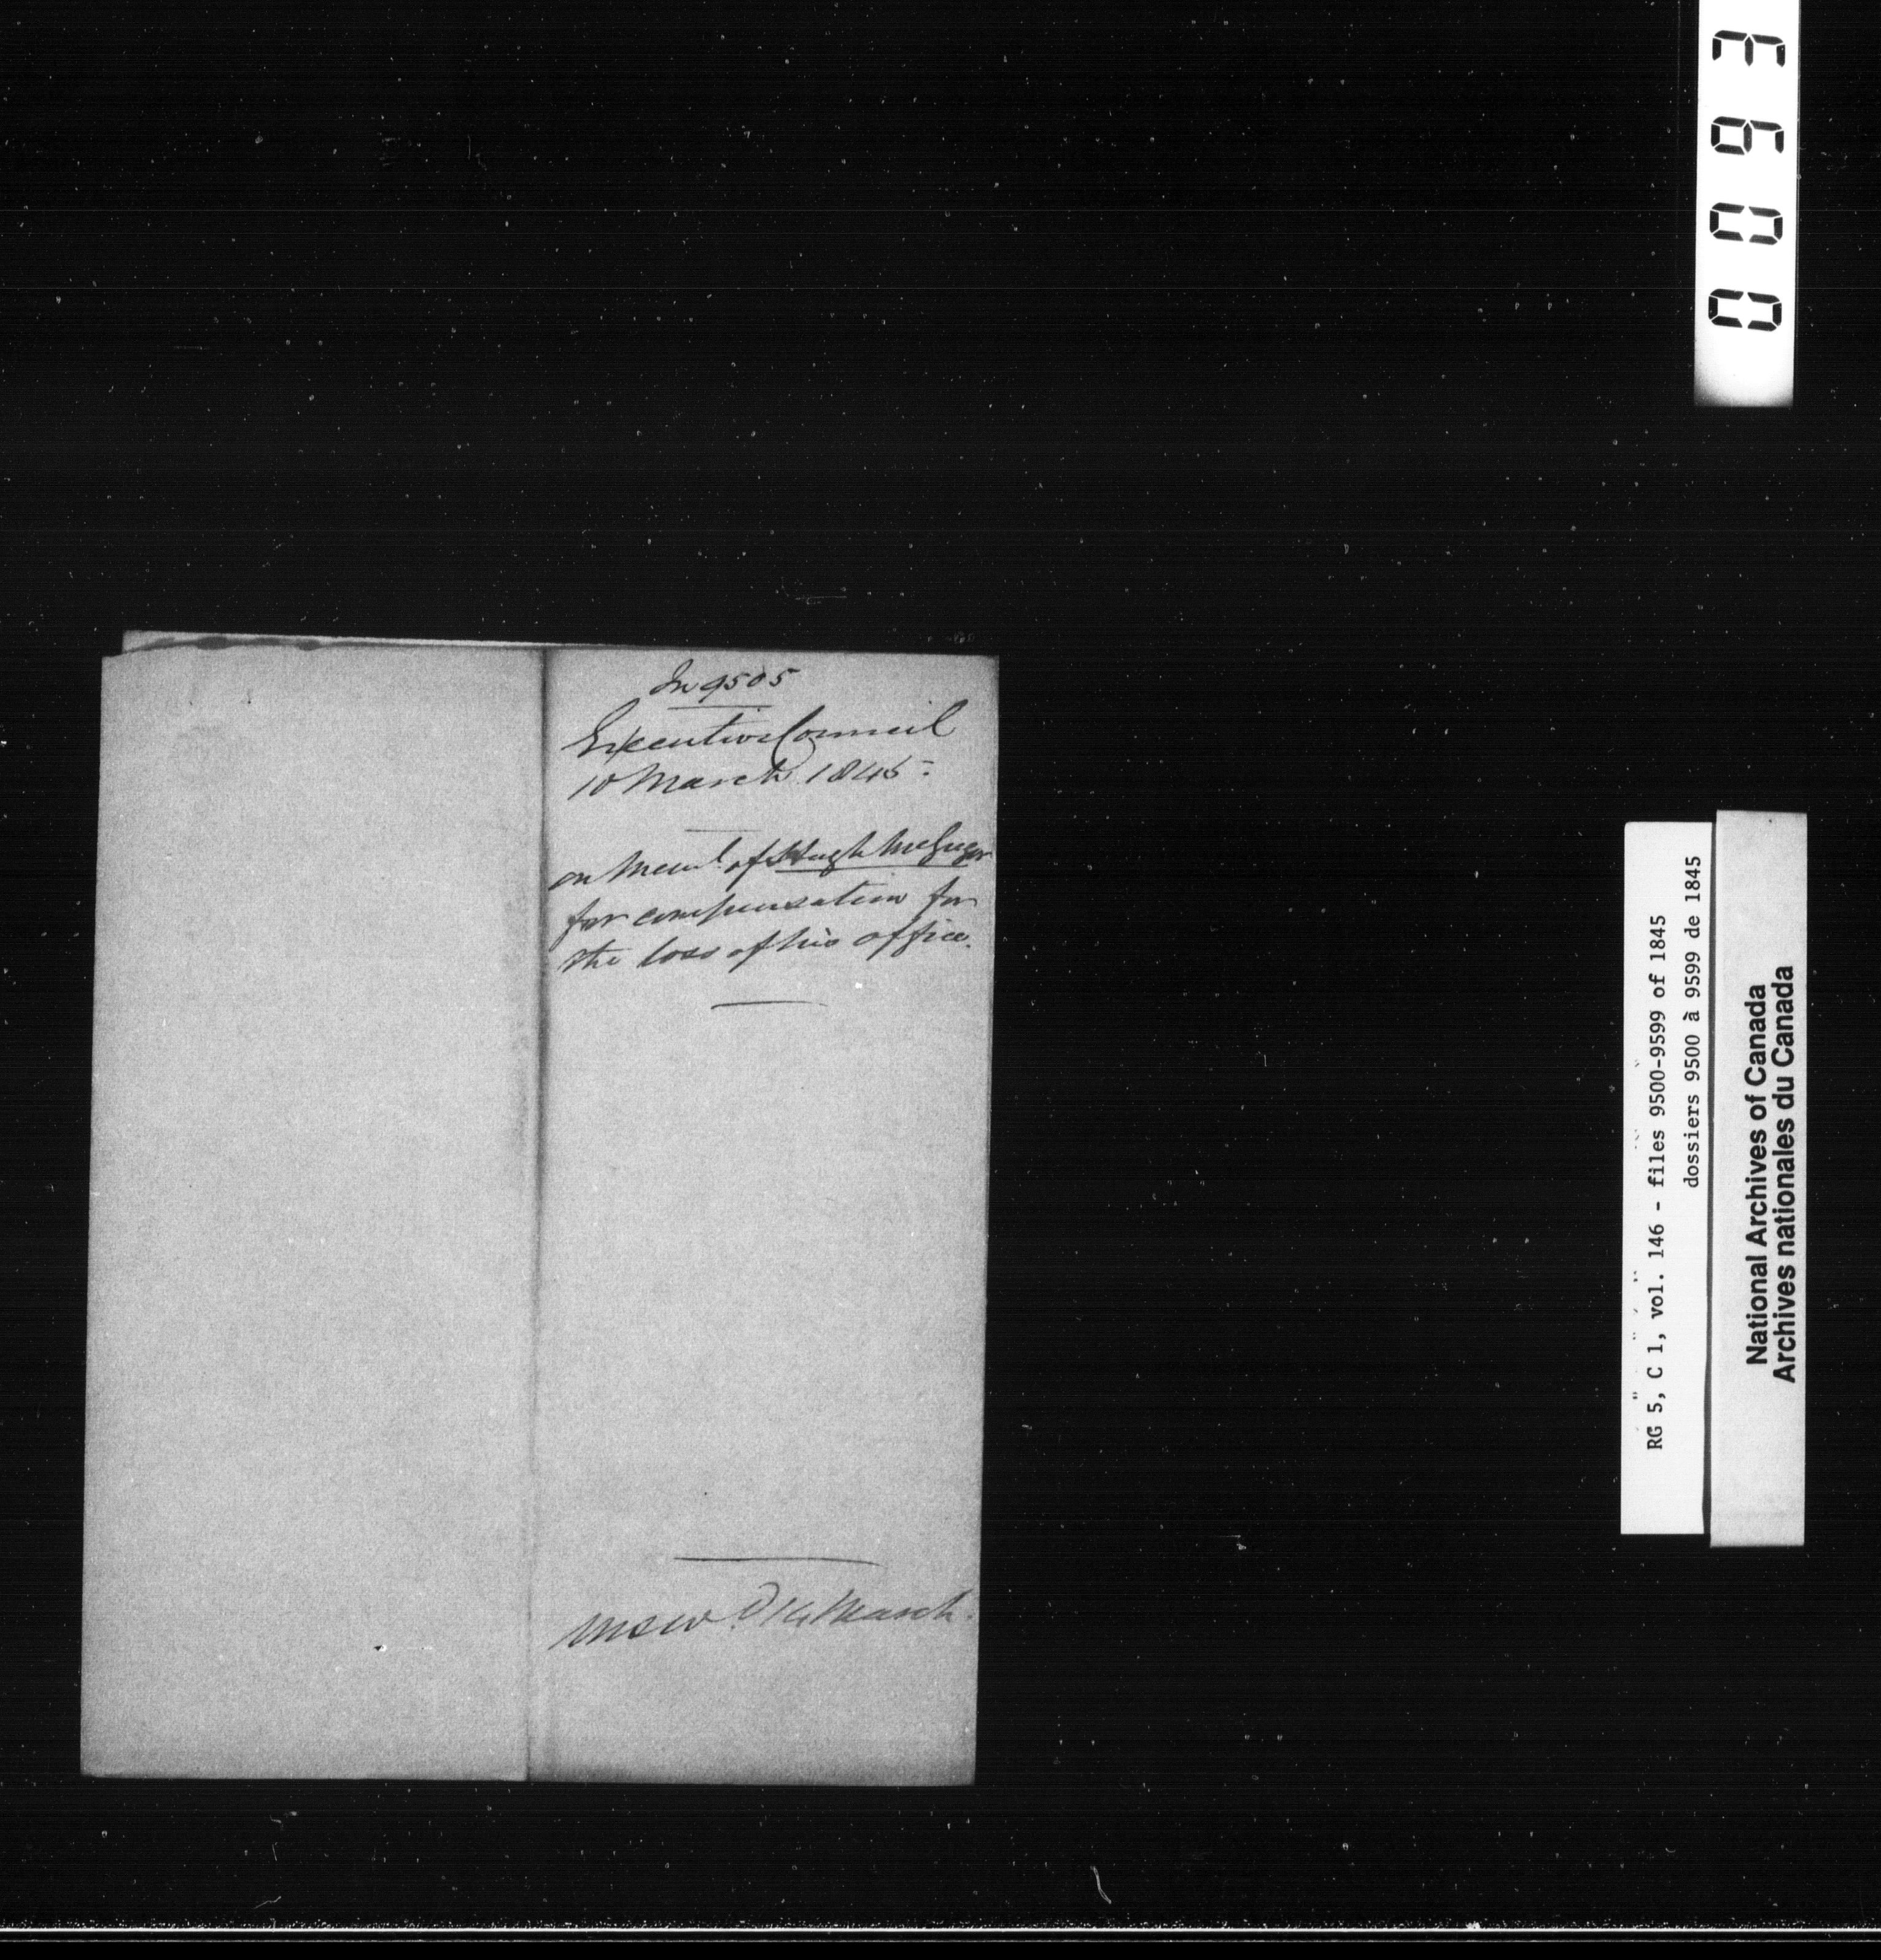 In 9505
Executive Council
10 March 1845.
on Meml. of Hugh McGregor
for compensation for
the loss of his office.
14 March.
0093
RG 5, C 1, vol. 146 - files 9500-9599 of 1845
dossiers 9500 à 9599 de 1845
National Archives of Canada
Archives nationales du Canada